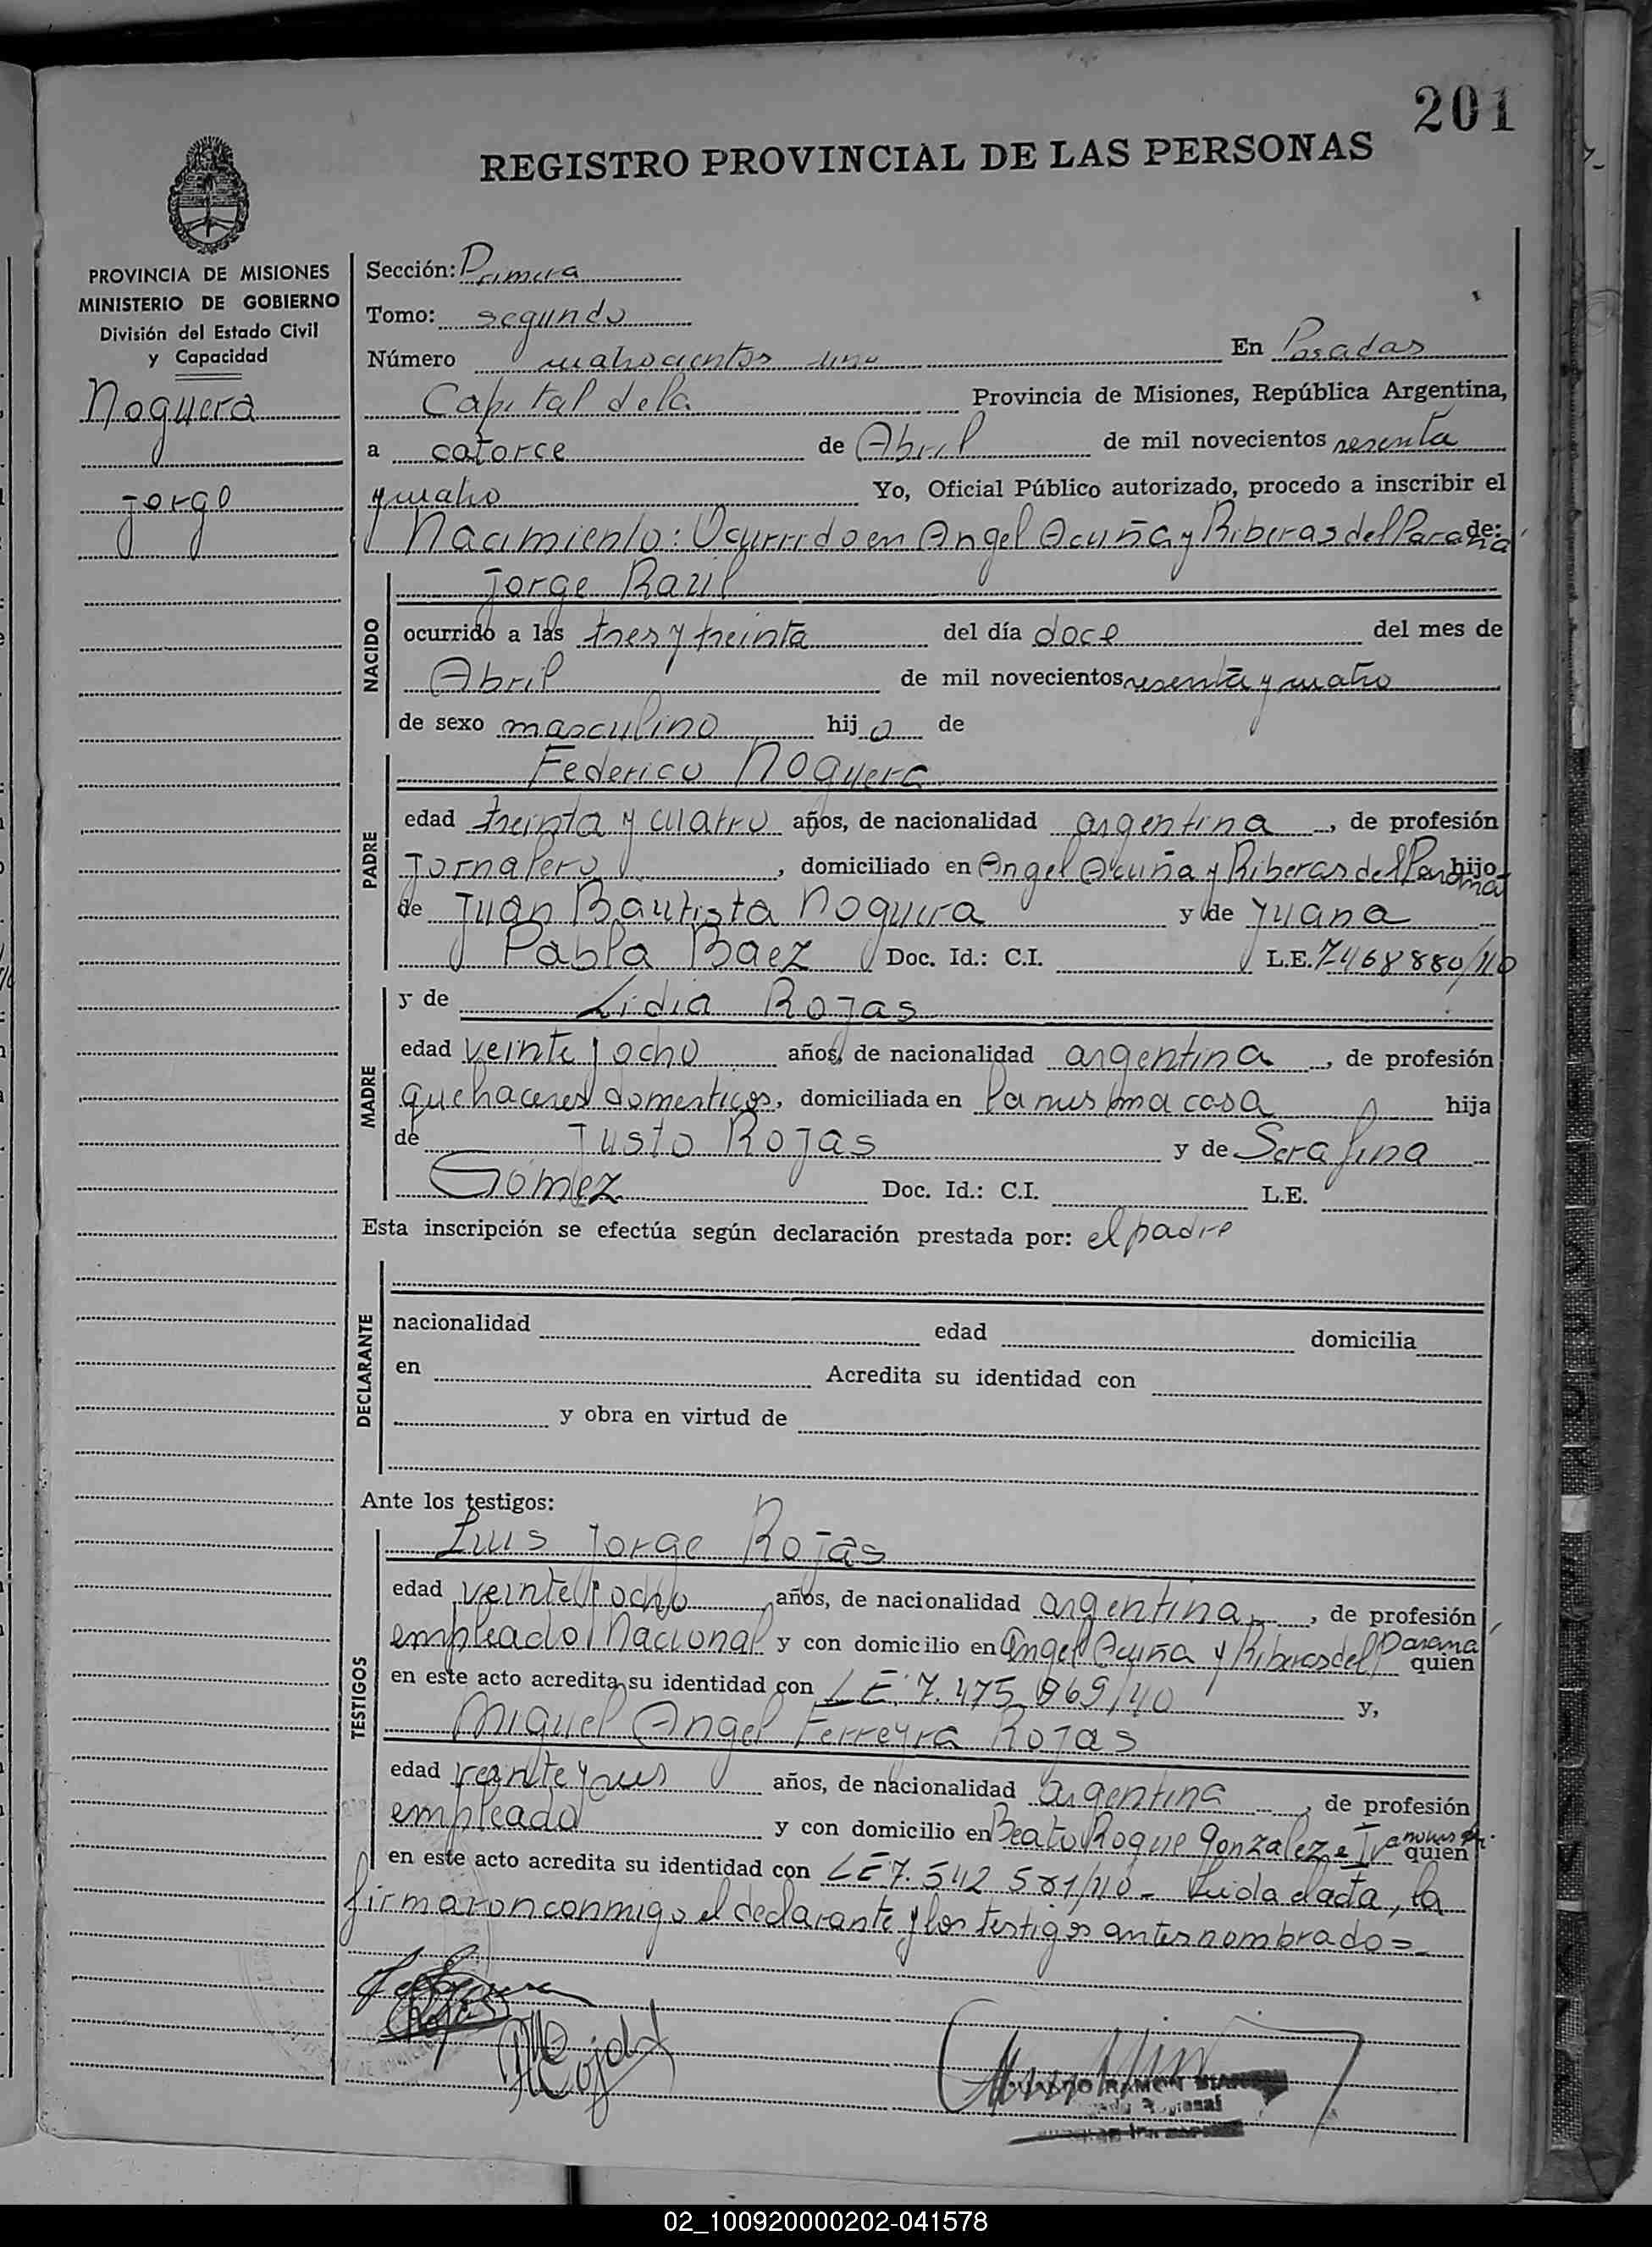 201
REGISTRO PROVINCIAL DE LAS PERSONAS
PROVINCIA DE MISIONES
MINISTERIO DE GOBIERNO
División del Estado Civil
y Capacidad
Noguera
Jorge
Sección: Primera
Tomo: segundo
Número cuatrocientos uno En Posadas
Capital de la Provincia de Misiones, República Argentina,
a catorce de Abril de mil novecientos sesenta
y cuatro Yo, Oficial Público autorizado, procedo a inscribir el
Nacimiento: Ocurrido en Angel Acuña y Riberas del Paraná de:
NACIDO
Jorge Raúl
ocurrido a las tres y treinta del día doce del mes de
Abril de mil novecientos sesenta y cuatro
de sexo masculino hijo de
PADRE
Federico Noguera
edad treinta y cuatro años, de nacionalidad argentina, de profesión
Jornalero, domiciliado en Angel Acuña y Riberas del Paraná hijo
de Juan Bautista Noguera y de Juana
Pabla Baez Doc. Id.: C.I. L.E. 7468880/40
MADRE
y de Lidia Rojas
edad veinte y ocho años, de nacionalidad argentina, de profesión
quehaceres domesticos, domiciliada en la misma casa hija
de Justo Rojas y de Serafina
Gómez Doc. Id.: C.I. L.E.
Esta inscripción se efectúa según declaración prestada por: el padre
DECLARANTE
nacionalidad edad domicilia
en Acredita su identidad con
y obra en virtud de
Ante los testigos:
TESTIGOS
Luis Jorge Rojas
edad veinte y ocho años, de nacionalidad argentina, de profesión
empleado Nacional y con domicilio en Angel Acuña y Riberas del Parana quien
en este acto acredita su identidad con LE 7.475.969/40 y,
Miguel Angel Ferreyra Rojas
edad veinte y tres años, de nacionalidad argentina, de profesión
empleado y con domicilio en Beato Roque Gonzalez e quien
en este acto acredita su identidad con LE 7.542.581/40 - Leida el acta, la
firmaron conmigo el declarante y los testigos antes nombrados=-
Rojas
RAMON
Regional
02_100920000202-041578